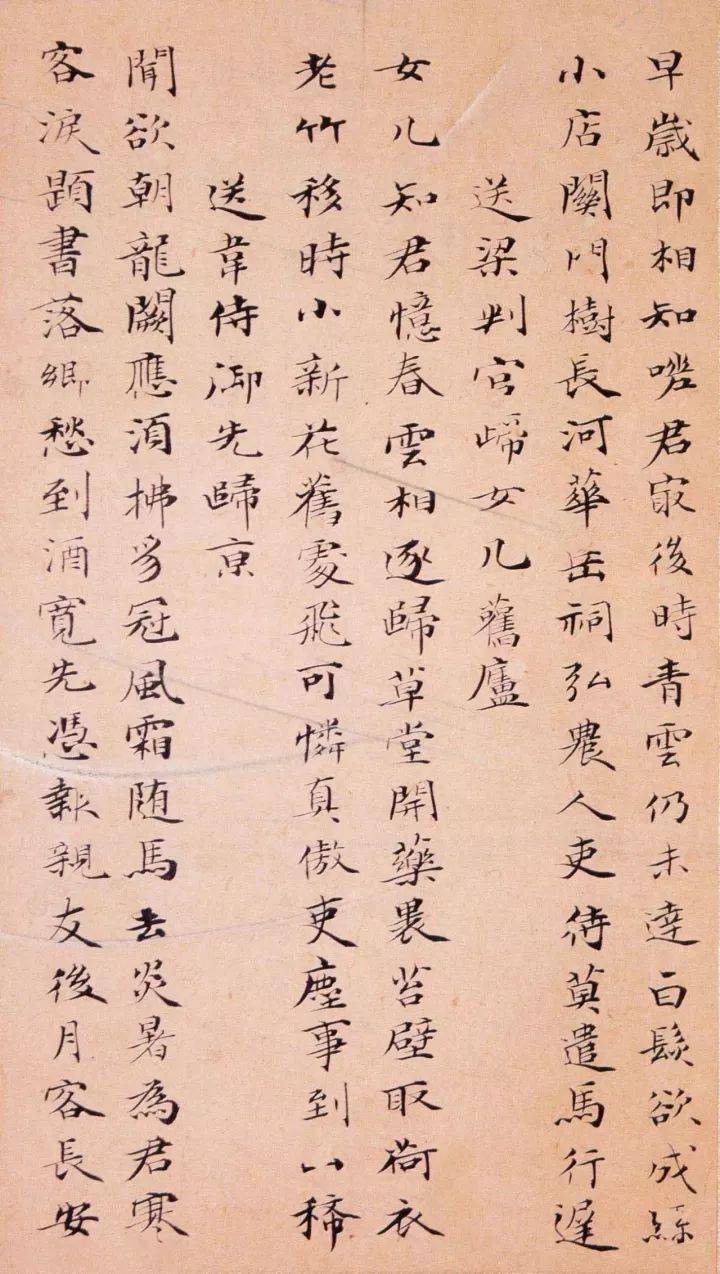 早歲即相知嗟君最後時青雲仍未達白髮欲成絲
小店關門樹長河華岳祠弘農人吏待莫遣馬行遲
送梁判官歸女几舊廬
女几知君憶春雲相逐歸草堂開藥裹苔壁取荷衣
老竹移時小新花舊處飛可憐真傲吏塵事到山稀
送韋侍御先歸京
聞欲朝龍闕應須拂豸冠風霜随馬去炎暑為君寒
客淚題書落鄉愁到酒寬先憑報親友後月客長安